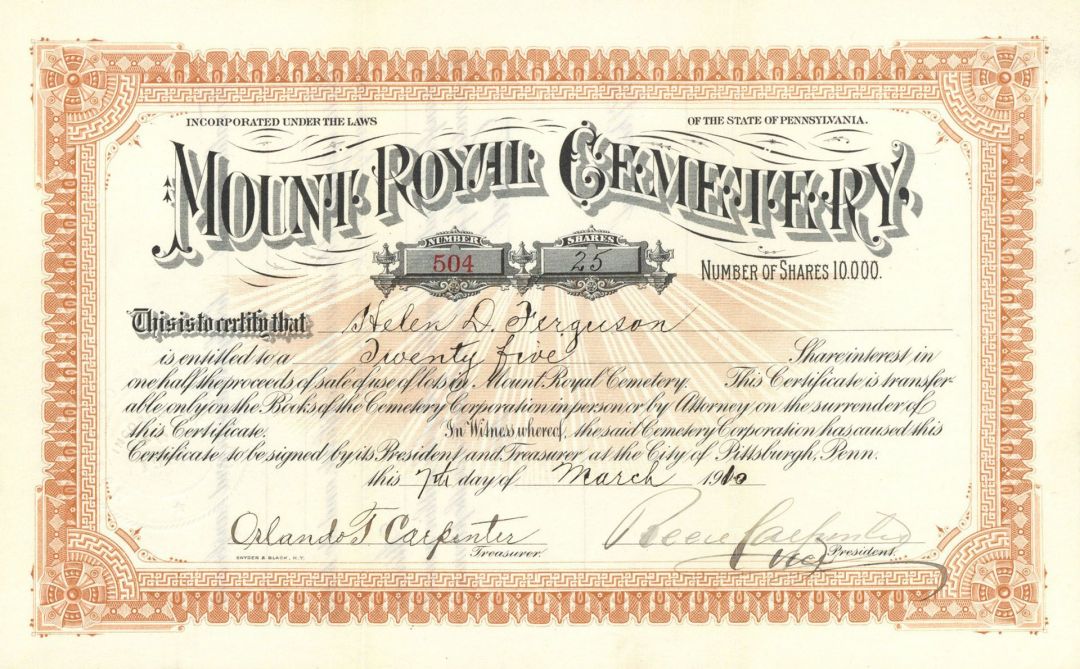 INCORPORATED UNDER THE LAWS OF THE STATE OF PENNSYLVANIA.
MOUNT ROYAL CEMETERY.
NUMBER SHARES
504 25
NUMBER OF SHARES 10.000.
This is to certify that Helen D. Ferguson
is entitled to a Twenty five Share interest in
one half the proceeds of sale of use of lots in Mount Royal Cemetery. This Certificate is transfer-
able only on the Books of the Cemetery Corporation in person or by Attorney on the surrender of
this Certificate. In Witness whereof, the said Cemetery Corporation has caused this
Certificate to be signed by its President and Treasurer, at the City of Pittsburgh, Penn.
this 7th day of March 1910
Orlando T Carpenter Carpenter
Treasurer. Vice President.
SNYDER & BLACK, N.Y.